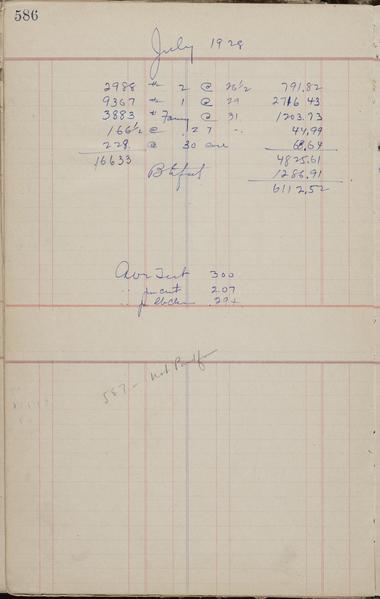 586
July 1928
2988 # 2 @ 26 1/2 791.82
9367 # 1 @ 29 2716 43
3883 # Fancy @ 31 1203.73
166 1/2 @ .27 44,99
229 @ 30 68,64
16633 4825.61
1286.91
6112,52
Avr Test 300
" 2.07
.29+
587 - not